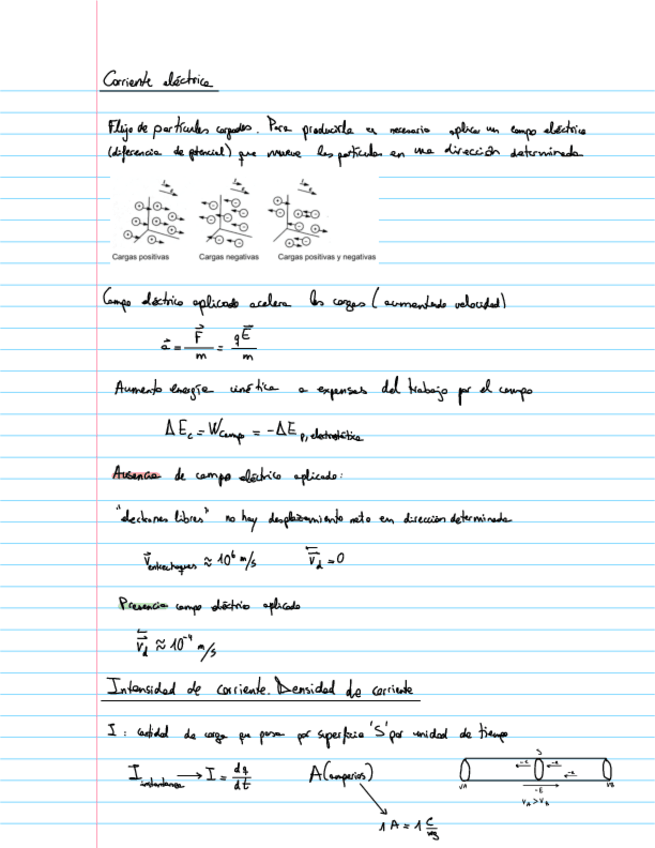 Corriente eléctrica
Flujo de partículas cargadas. Para producirla es necesario aplicar un campo eléctrico
(diferencia de potencial) que mueve las partículas en una dirección determinada
Cargas positivas Cargas negativas Cargas positivas y negativas
Campo eléctrico aplicado acelera las cargas (aumentando velocidad)
a = F/m = qE/m
Aumento energía cinética a expensas del trabajo por el campo
ΔEc = Wcampo = -ΔEp, electrostática
Ausencia de campo eléctrico aplicado:
"electrones libres" no hay desplazamiento neto en dirección determinada
v entrechoques ≈ 10⁶ m/s v_d = 0
Presencia campo eléctrico aplicado
v_d ≈ 10⁻⁴ m/s
Intensidad de corriente. Densidad de corriente
I : cantidad de carga que pasa por superficie 'S' por unidad de tiempo
I instantánea → I = dq/dt A (amperios)
S
VA VB
1 A = 1 C/